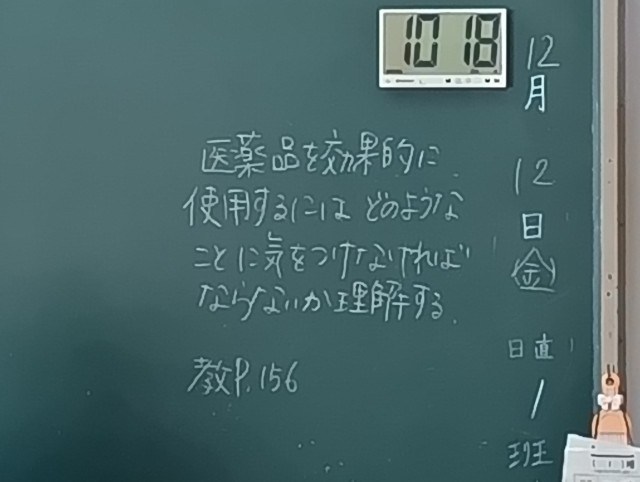 10 18
医薬品を効果的に
使用するにはどのような
ことに気をつけなければ
ならないか理解する
教P.156
12
月
12
日
(金)
日直
1
班